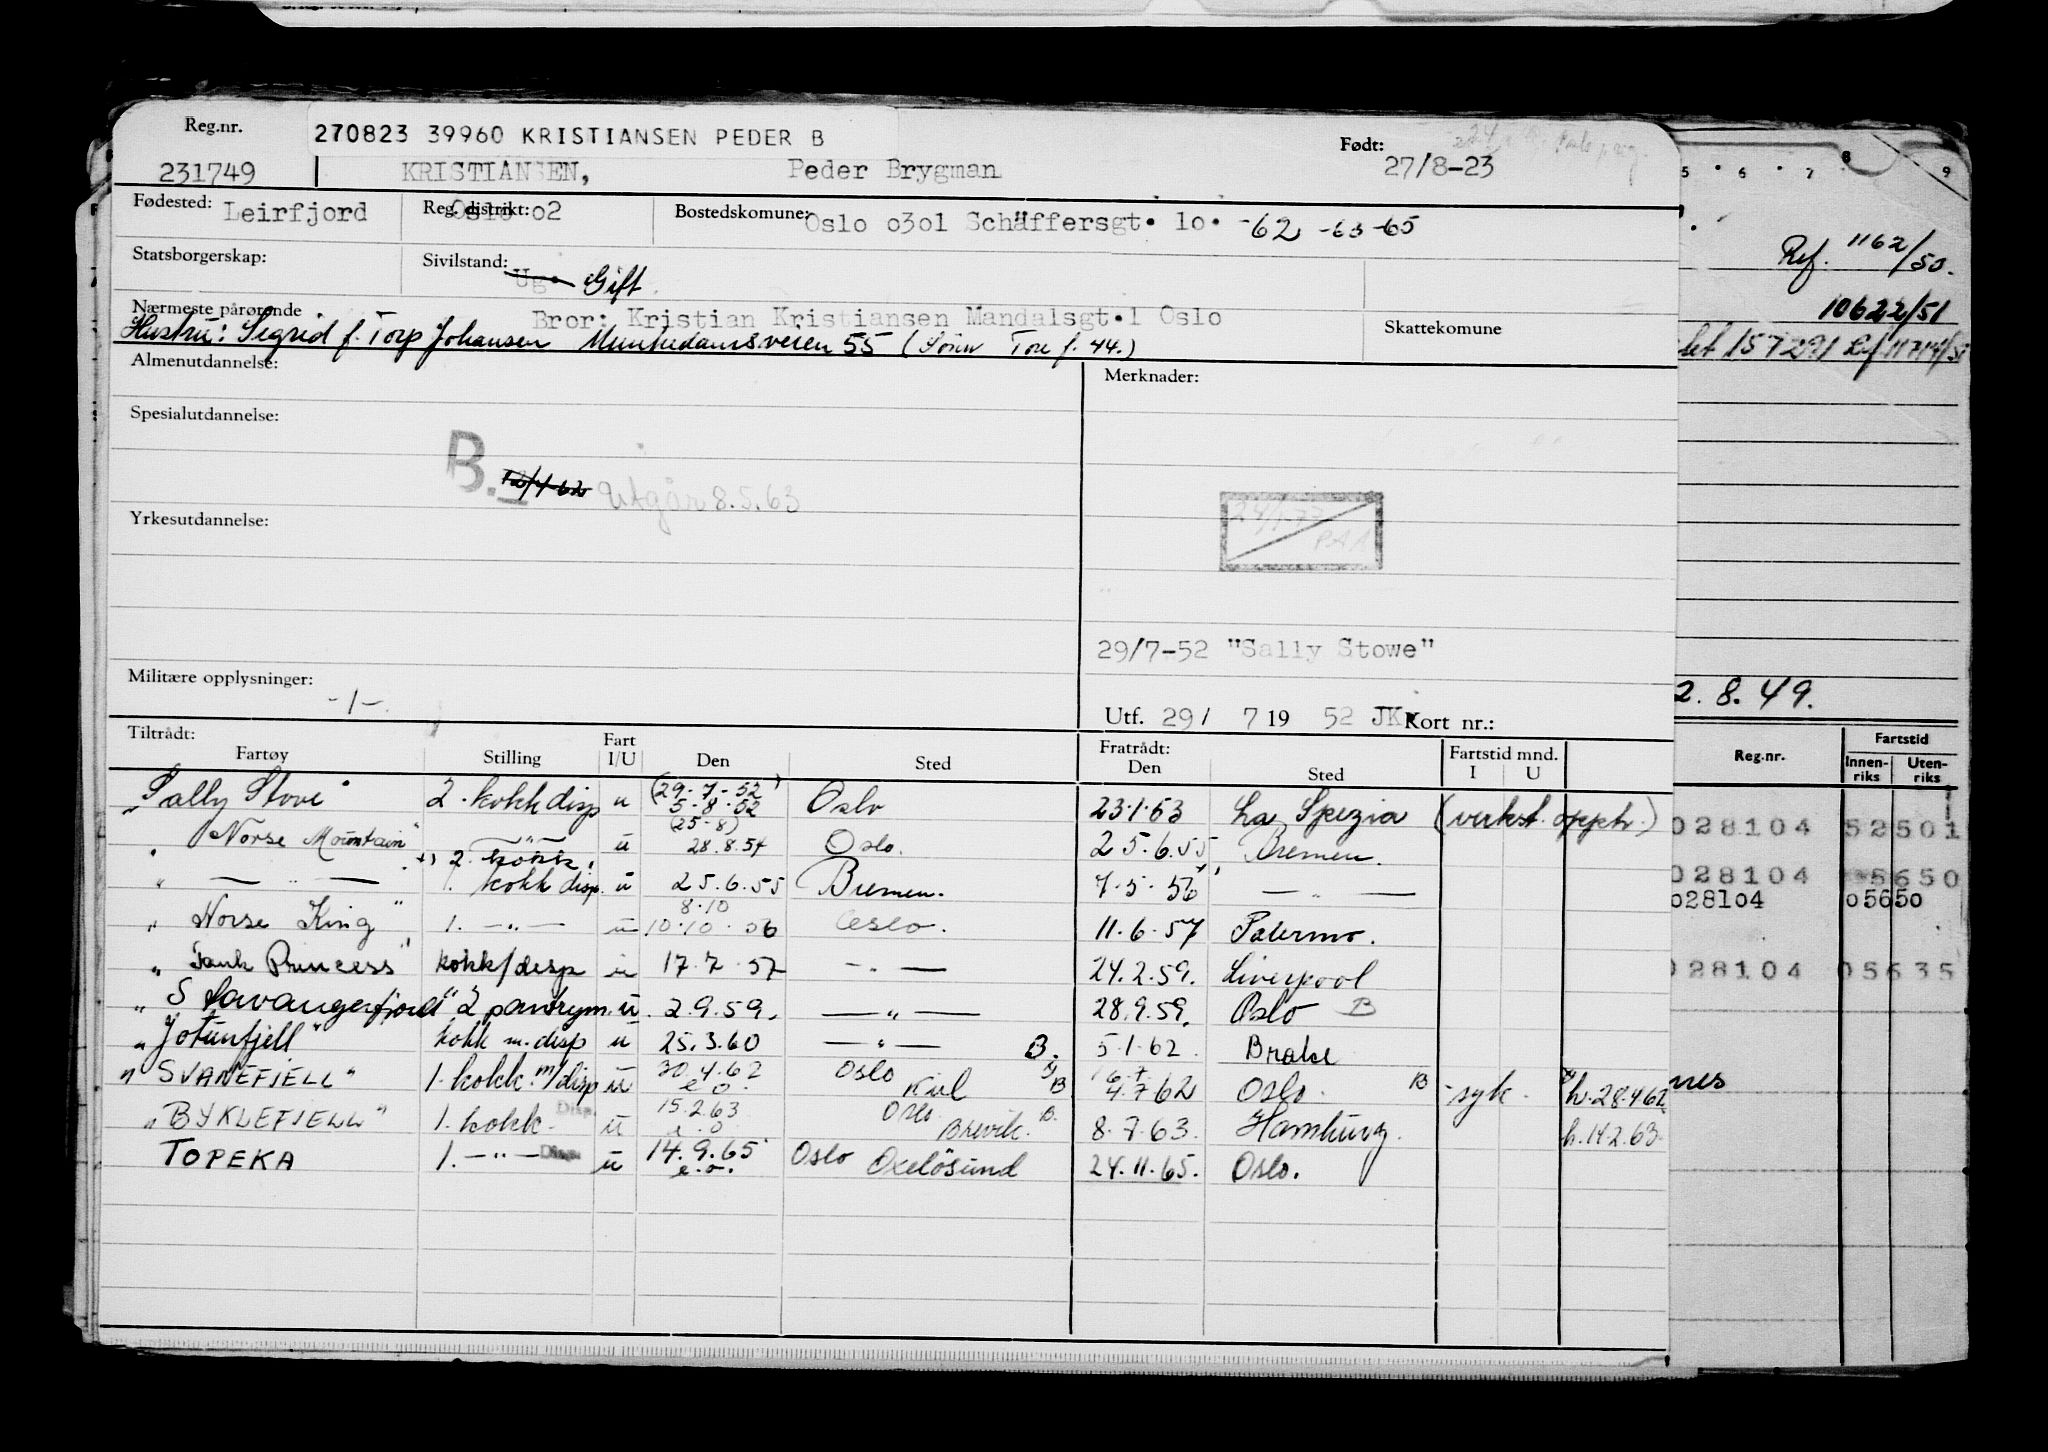 Reg.nr. 270823 39960 KRISTIANSEN PEDER B Født:
231749 KRISTIANSEN, Peder Brygman 27/8-23
Fødested: Leirfjord Reg. distrikt: Oslo o2 Bostedskomune: Oslo o3o1 Schäffersgt. 1o. -62 -63 -65
Statsborgerskap: Sivilstand: Ug. Gift
Nærmeste pårørende Bror: Kristian Kristiansen Mandalsgt.1 Oslo Skattekomune
Hustru: Sigrid f. Torp Johansen Munkedamsveien 55 (Sønn Tore f. 44.)
Almenutdannelse: Merknader:
Spesialutdannelse:
B. 12/4-62 Utgår 8.5.63
24/1-77
PAA
Yrkesutdannelse:
29/7-52 "Sally Stowe"
Militære opplysninger: -1-.
Utf. 29/ 7 19 52 JK. Kort nr.:
Tiltrådt: Fratrådt: Fartstid mnd.
Fartøy Stilling Fart I/U Den Sted Den Sted I U
"Sally Stove" 2. kokk disp u (29-7-52) 5-8-52 Oslo 23.1.53 La Spezia (verkst. opph.)
" Norse Mountain" —"— u (25-8) 28.8.54 Oslo. 25.6.55 Bremen.
+) 2. kokk.
" — " — 1. kokk disp. u 25.6.55 Bremen. 7.5.56 +) — " —
" Norse King" 1. —"— u 8.10 10.10.56 Oslo. 11.6.57 Palermo.
" Tank Princess" kokk/disp u 17.7.57 — " — 24.2.59. Liverpool
" Stavangerfjord" 2 pantrym. u. 2.9.59. — " — 28.9.59. Oslo B
"Jotunfjell" kokk m. disp u 25.3.60 — " — B. 5.1.62. Brake
"SVANEFJELL" 1. kokk m/disp u 30.4.62 e.o. Oslo Kiel B 4.7.62 Oslo. B - syk. h.28.4.62
"BYKLEFJELL" 1. kokk. Disp. u 15.2.63 e.o. Oslo Brevik. B. 8.7.63. Hamburg. h.14.2.63.
TOPEKA 1. —"— Disp. u 14.9.65 e.o. Oslo Oxelösund 24.11.65. Oslo.
5 . 6 . 7 8 9
Ref. 1162/50.
10622/51
2.8.49.
Reg.nr. Fartstid
Innenriks Utenriks
028104 52501
028104 5650
o281o4 o5650
028104 05635
nes